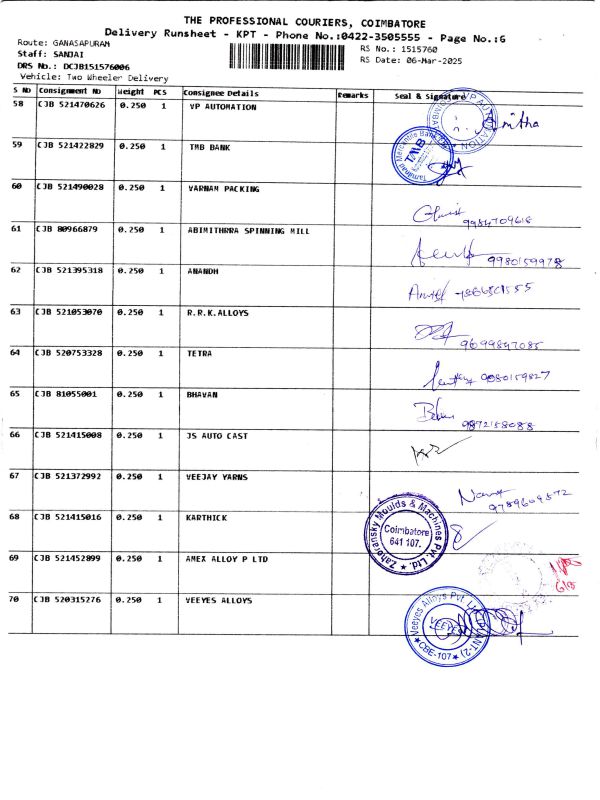 THE PROFESSIONAL COURIERS, COIMBATORE
Delivery Runsheet - KPT - Phone No.:0422-3505555 - Page No.:6
Route: GANASAPURAM
RS No.: 1515760
Staff: SANJAI
RS Date: 06-Mar-2025
DRS No.: DCJB151576006
Vehicle: Two Wheeler Delivery
S No Consignment No Weight PCS Consignee Details Remarks Seal & Signature
58 CJB 521470626 0.250 1 VP AUTOMATION
VP AUTOMATION
59 CJB 521422829 0.250 1 TMB BANK
Tamilnad Mercantile Bank
TMB
60 CJB 521490028 0.250 1 VARNAM PACKING
9984709618
61 CJB 80966879 0.250 1 ABIMITHRRA SPINNING MILL
9980159978
62 CJB 521395318 0.250 1 ANANDH
63 CJB 521053070 0.250 1 R.R.K.ALLOYS
9699847085
64 CJB 520753328 0.250 1 TETRA
9080159827
65 CJB 81055001 0.250 1 BHAVAN
9872158088
66 CJB 521415008 0.250 1 JS AUTO CAST
67 CJB 521372992 0.250 1 VEEJAY YARNS
9789609572
68 CJB 521415016 0.250 1 KARTHICK
Zahoransky Moulds & Machines Pvt. Ltd.
Coimbatore
641 107.
69 CJB 521452899 0.250 1 AMEX ALLOY P LTD
70 CJB 520315276 0.250 1 VEEYES ALLOYS
Veeyes Alloys Pvt. Ltd. (UNIT-2)
VEEYES
CBE-107